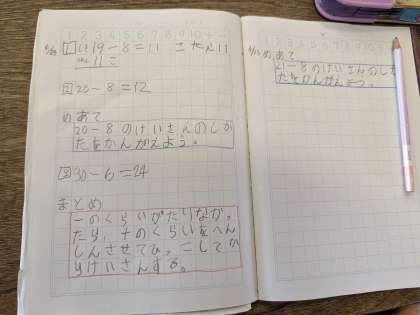 1 2 3 4 5 6 7 8 9 10 + -
6/23 1 しき19-8=11 こたえ11
11こ
2 20-8=12
めあて
20-8のけいさんのしか
たをかんがえよう。
3 30-6=24
まとめ
一のくらいがたりなかっ
たら、十のくらいをへん
しんさせてひっこしてか
らけいさんする。
めあて
21-8のけいさんのしか
たをかんがえよう。